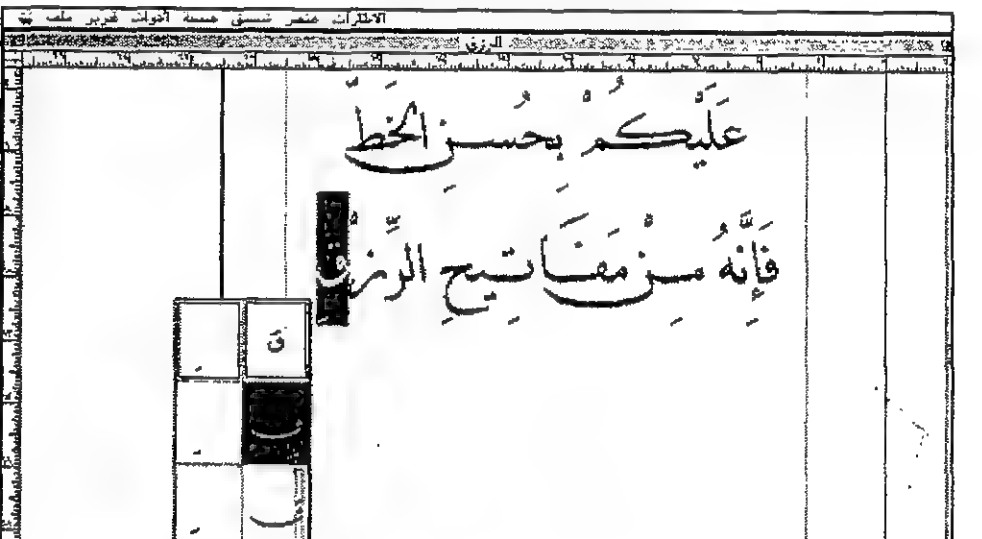 الاطارات عنصر نسق همسة أدوات تحرير ملف
الرزق
عَلَيْكُمْ بِحُسْنِ الخَطِّ
فَإِنَّهُ مِنْ مَفَاتِيحِ الرِّزْقِ
ق